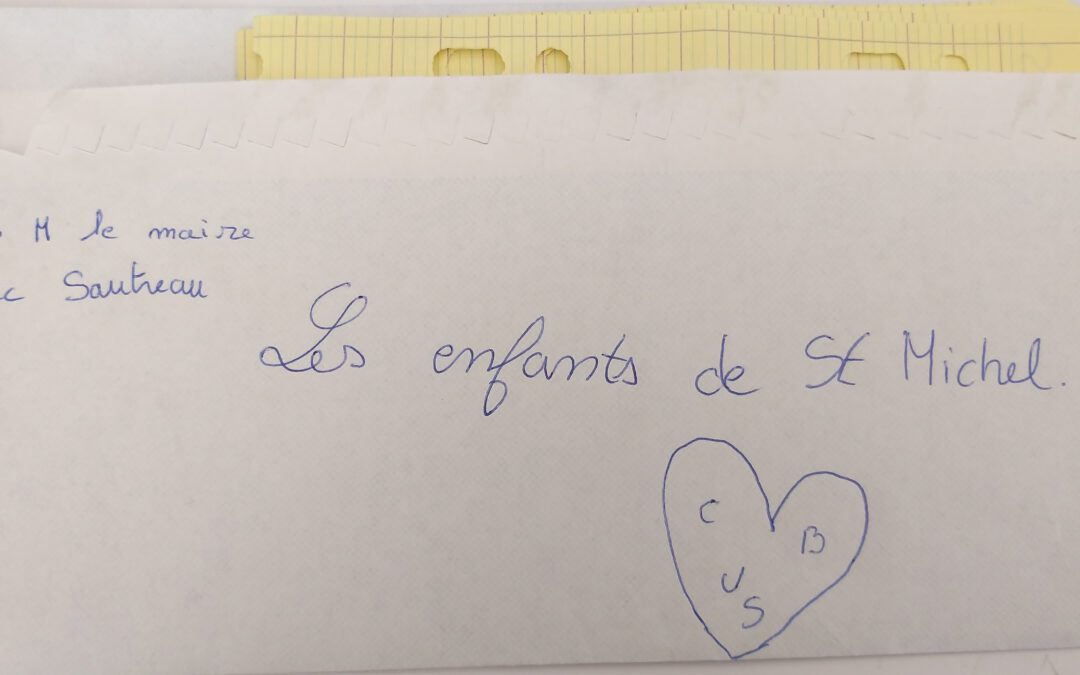 M le maire
Sautreau
Les enfants de St Michel.
C
B
U
S